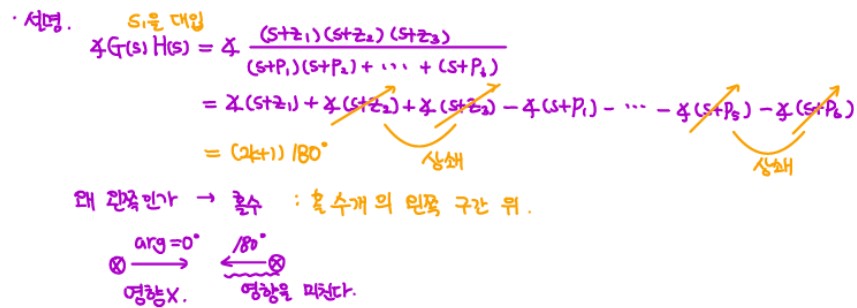 · 설명.
S₁을 대입
∡G(s)H(s) = ∡ (s+z₁)(s+z₂)(s+z₃) / (s+p₁)(s+p₂)+ ⋯ + (s+p₆)
= ∡(s+z₁) + ∡(s+z₂) + ∡(s+z₃) - ∡(s+p₁) - ⋯ - ∡(s+p₅) - ∡(s+p₆)
= (2k+1) 180° 상쇄 상쇄
왜 왼쪽인가 → 홀수 : 홀수개의 왼쪽 구간 위.
arg=0° 180°
영향X. 영향을 미친다.